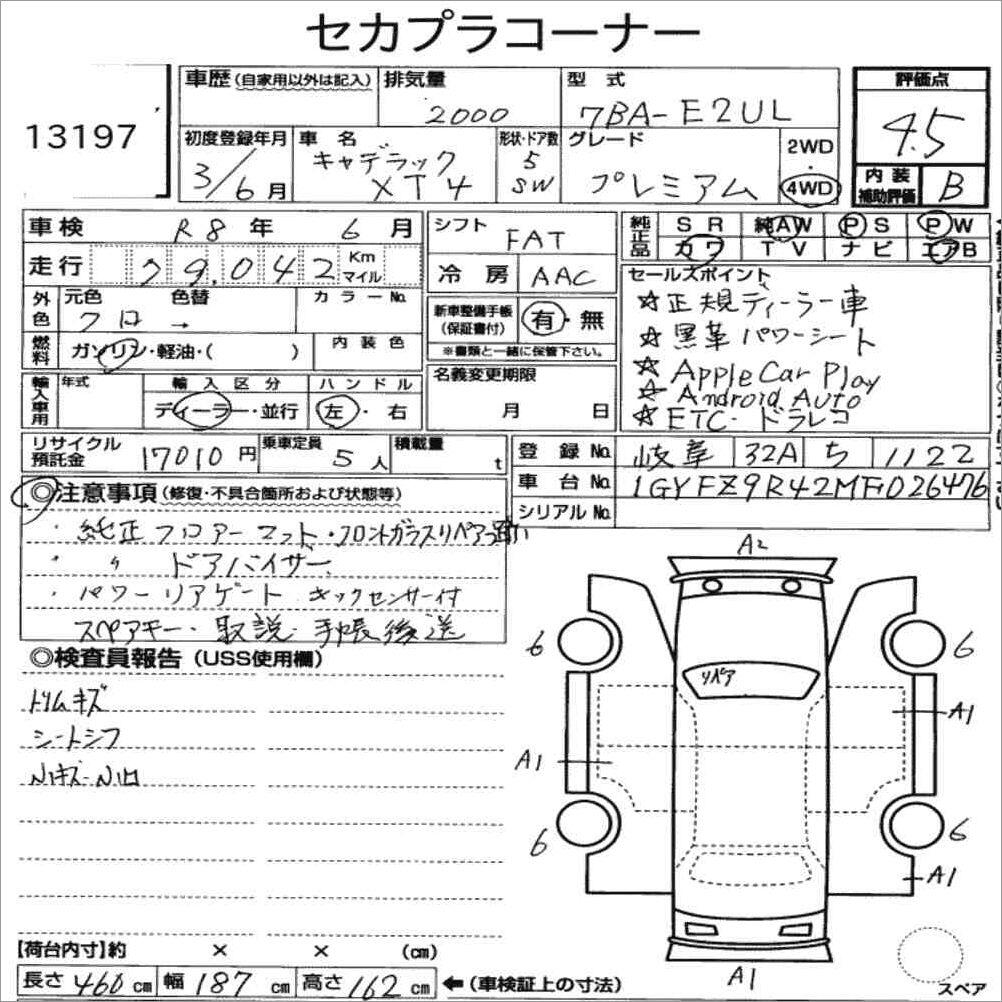 セカプラコーナー
13197
車歴(自家用以外は記入) 排気量 型式 評価点
2000 7BA-E2UL 4.5
初度登録年月 車名 形状・ドア数 グレード 2WD・4WD
3/6月 キャデラック XT4 5 SW プレミアム
内装補助評価 B
車検 R8年 6月
走行 79,042 Km マイル
シフト FAT
冷房 AAC
純正品 SR 純AW PS PW
カワ TV ナビ エアB
外色 元色 色替 カラーNo.
クロ →
燃料 ガソリン・軽油・( ) 内装色
新車整備手帳(保証書付) 有・無
※書類と一緒に保管下さい。
セールスポイント
☆正規ディーラー車
☆黒革パワーシート
☆Apple Car Play
☆Android Auto
☆ETC・ドラレコ
輸入車用 年式 輸入区分 ハンドル
ディーラー・並行 左・右
名義変更期限
月 日
リサイクル預託金 17010円 乗車定員 5人 積載量 t
登録No. 岐阜 32A ち 1122
車台No. 1GYFZ9R42MF026476
シリアルNo.
◎注意事項(修復・不具合箇所および状態等)
・純正フロアーマット・フロントガラスリペア
・〃 ドアバイザー
・パワーリアゲート キックセンサー付
スペアキー・取説・手帳後送
◎検査員報告(USS使用欄)
トリムキズ
シートシワ
A2
6 6
リペア
A1
A1
6 6
A1
A1
【荷台内寸】約 × × (cm)
長さ 460 cm 幅 187 cm 高さ 162 cm ←(車検証上の寸法)
スペア